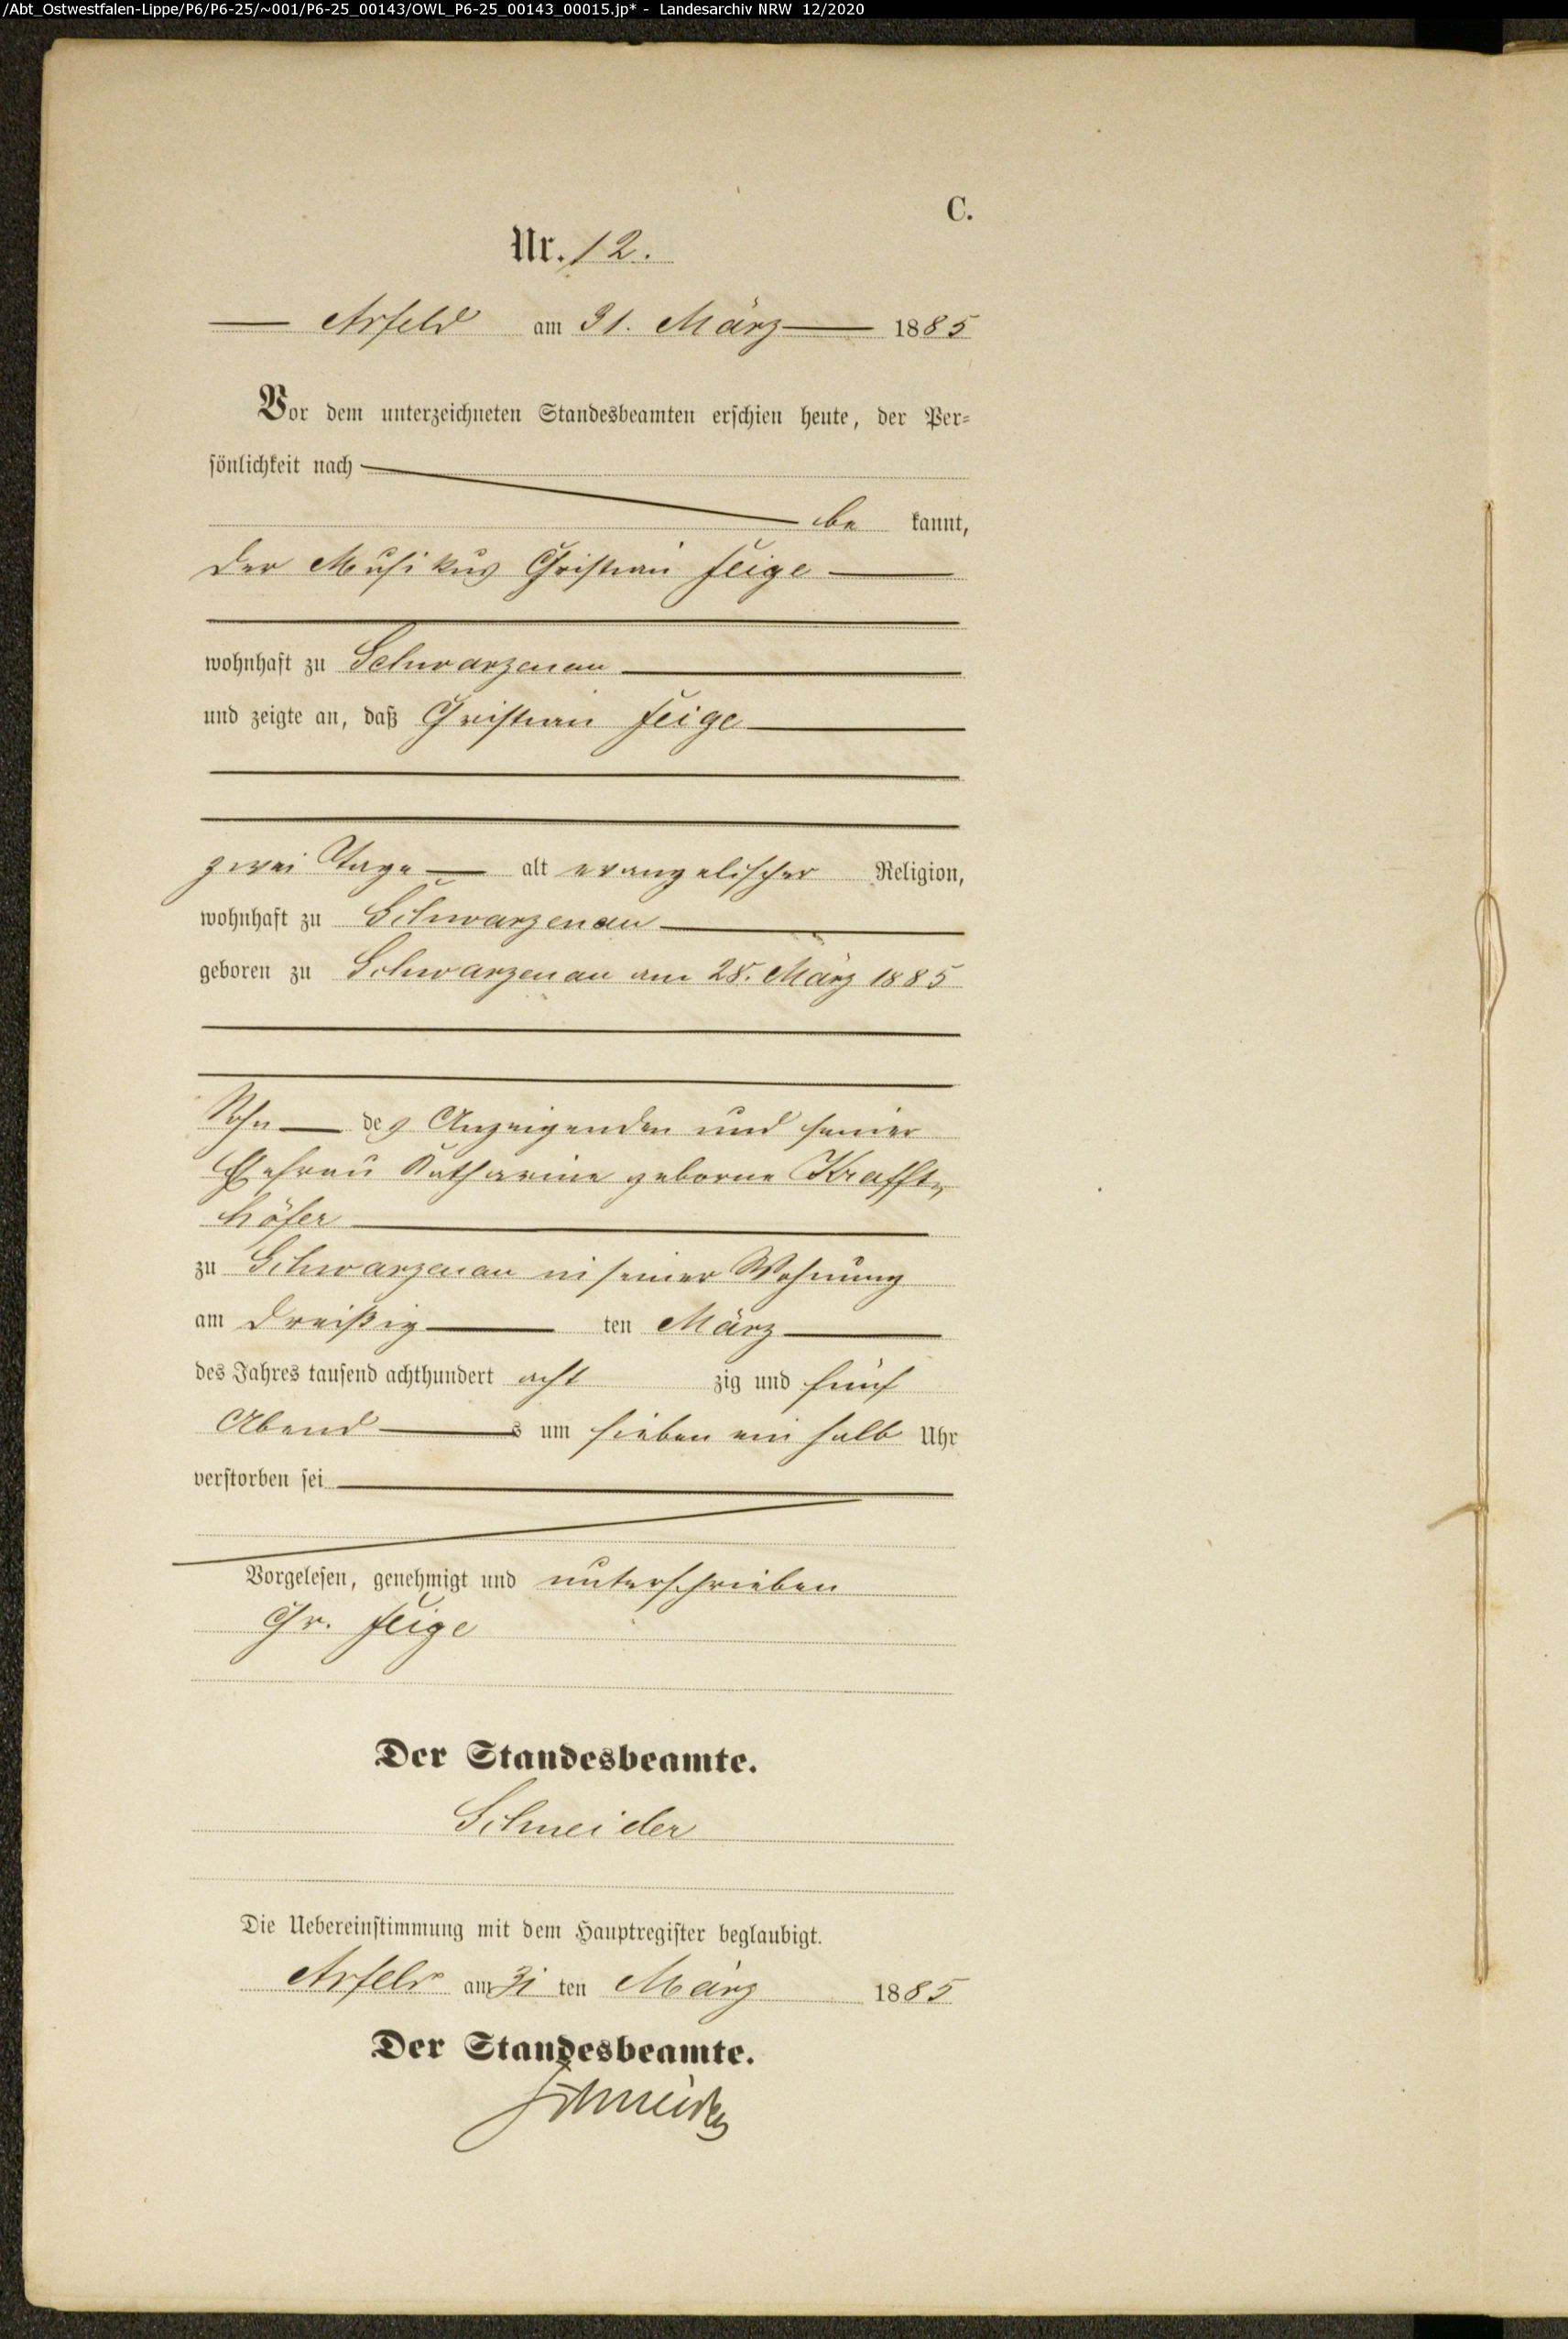 /Abt_Ostwestfalen-Lippe/P6/P6-25/~001/P6-25_00143/OWL_P6-25_00143_00015.jp* - Landesarchiv NRW 12/2020
C.
Nr. 12.
Arfeld am 31. März 1885
Vor dem unterzeichneten Standesbeamten erschien heute, der Per-
sönlichkeit nach
be kannt,
der Musikus Christian Feige
wohnhaft zu Schwarzenau
und zeigte an, daß Christian Feige
zwei Tage alt evangelischer Religion,
wohnhaft zu Schwarzenau
geboren zu Schwarzenau am 28. März 1885
Sohn des Anzeigenden und seiner
Ehefrau Katharine geborne Krafft-
höfer
zu Schwarzenau in seiner Wohnung
am dreißig ten März
des Jahres tausend achthundert acht zig und fünf
Abend s um sieben ein halb Uhr
verstorben sei
Vorgelesen, genehmigt und unterschrieben
Chr. Feige
Der Standesbeamte.
Schneider
Die Uebereinstimmung mit dem Hauptregister beglaubigt.
Arfeld am 31 ten März 1885
Der Standesbeamte.
Schneider